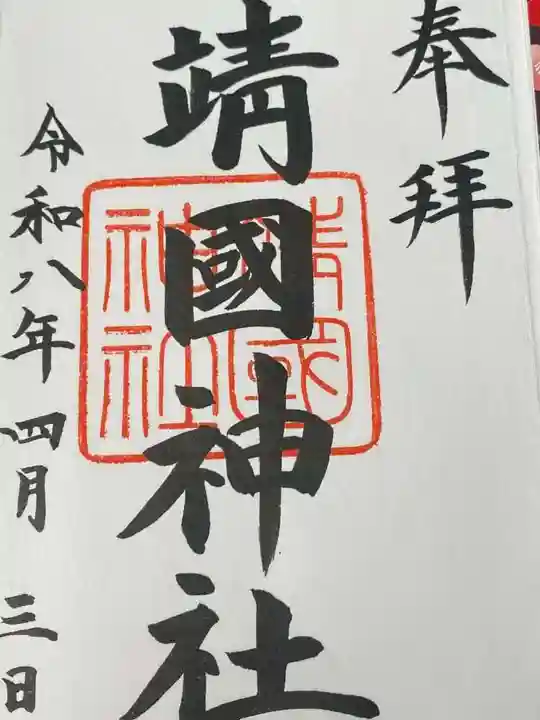 奉拝
靖國神社
靖国
神社
令和八年四月三日